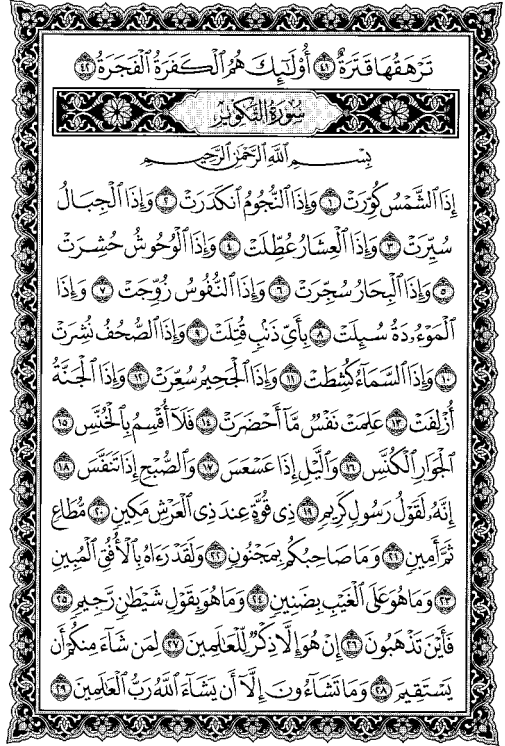 تَرْهَقُهَا قَتَرَةٌ ٤١ أُوْلَٰٓئِكَ هُمُ الْكَفَرَةُ الْفَجَرَةُ ٤٢
سُورَةُ التَّكْوِيرِ
بِسْمِ اللَّهِ الرَّحْمَٰنِ الرَّحِيمِ
إِذَا الشَّمْسُ كُوِّرَتْ ١ وَإِذَا النُّجُومُ انكَدَرَتْ ٢ وَإِذَا الْجِبَالُ
سُيِّرَتْ ٣ وَإِذَا الْعِشَارُ عُطِّلَتْ ٤ وَإِذَا الْوُحُوشُ حُشِرَتْ
٥ وَإِذَا الْبِحَارُ سُجِّرَتْ ٦ وَإِذَا النُّفُوسُ زُوِّجَتْ ٧ وَإِذَا
الْمَوْءُۥدَةُ سُئِلَتْ ٨ بِأَيِّ ذَنۢبٍ قُتِلَتْ ٩ وَإِذَا الصُّحُفُ نُشِرَتْ
١٠ وَإِذَا السَّمَآءُ كُشِطَتْ ١١ وَإِذَا الْجَحِيمُ سُعِّرَتْ ١٢ وَإِذَا الْجَنَّةُ
أُزْلِفَتْ ١٣ عَلِمَتْ نَفْسٌ مَّآ أَحْضَرَتْ ١٤ فَلَآ أُقْسِمُ بِالْخُنَّسِ ١٥
الْجَوَارِ الْكُنَّسِ ١٦ وَالَّيْلِ إِذَا عَسْعَسَ ١٧ وَالصُّبْحِ إِذَا تَنَفَّسَ ١٨
إِنَّهُۥ لَقَوْلُ رَسُولٍ كَرِيمٍ ١٩ ذِي قُوَّةٍ عِندَ ذِي الْعَرْشِ مَكِينٍ ٢٠ مُّطَاعٍ
ثَمَّ أَمِينٍ ٢١ وَمَا صَاحِبُكُم بِمَجْنُونٍ ٢٢ وَلَقَدْ رَءَاهُ بِالْأُفُقِ الْمُبِينِ
٢٣ وَمَا هُوَ عَلَى الْغَيْبِ بِضَنِينٍ ٢٤ وَمَا هُوَ بِقَوْلِ شَيْطَٰنٍ رَّجِيمٍ ٢٥
فَأَيْنَ تَذْهَبُونَ ٢٦ إِنْ هُوَ إِلَّا ذِكْرٌ لِّلْعَٰلَمِينَ ٢٧ لِمَن شَآءَ مِنكُمْ أَن
يَسْتَقِيمَ ٢٨ وَمَا تَشَآءُونَ إِلَّآ أَن يَشَآءَ اللَّهُ رَبُّ الْعَٰلَمِينَ ٢٩